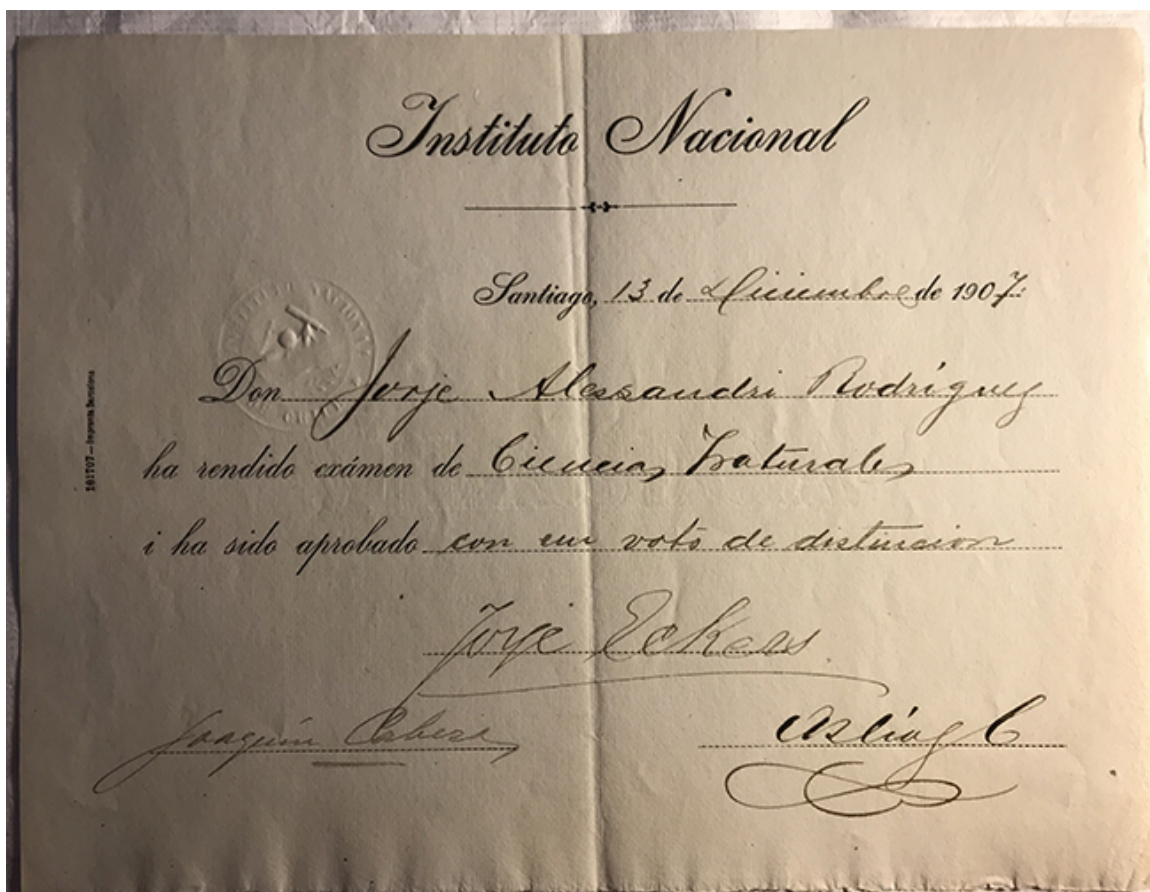 Instituto Nacional
Santiago, 13 de Diciembre de 1907.
Don Jorje Alessandri Rodríguez
ha rendido exámen de Ciencias Naturales
i ha sido aprobado con un voto de distincion
Jorje Eckers
Joaquín Cabezas
101707—Imprenta Barcelona